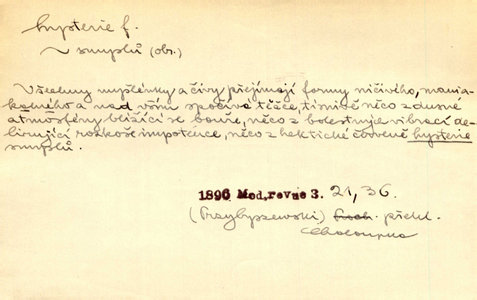 hysterie f.
~ smyslů (obr.)
Všechny myšlénky a činy přejímají formy ničivého, mania-
kálního a nad vším spočívá tížící, tísnivě něco z dusné
atmosféry blížící se bouře, něco z bolestných vibrací de-
lirující rozkoše impotence, něco z hektické červeně hysterie
smyslů.
1896 Mod. revue 3. 21, 36.
(Przybyszewski) překl.